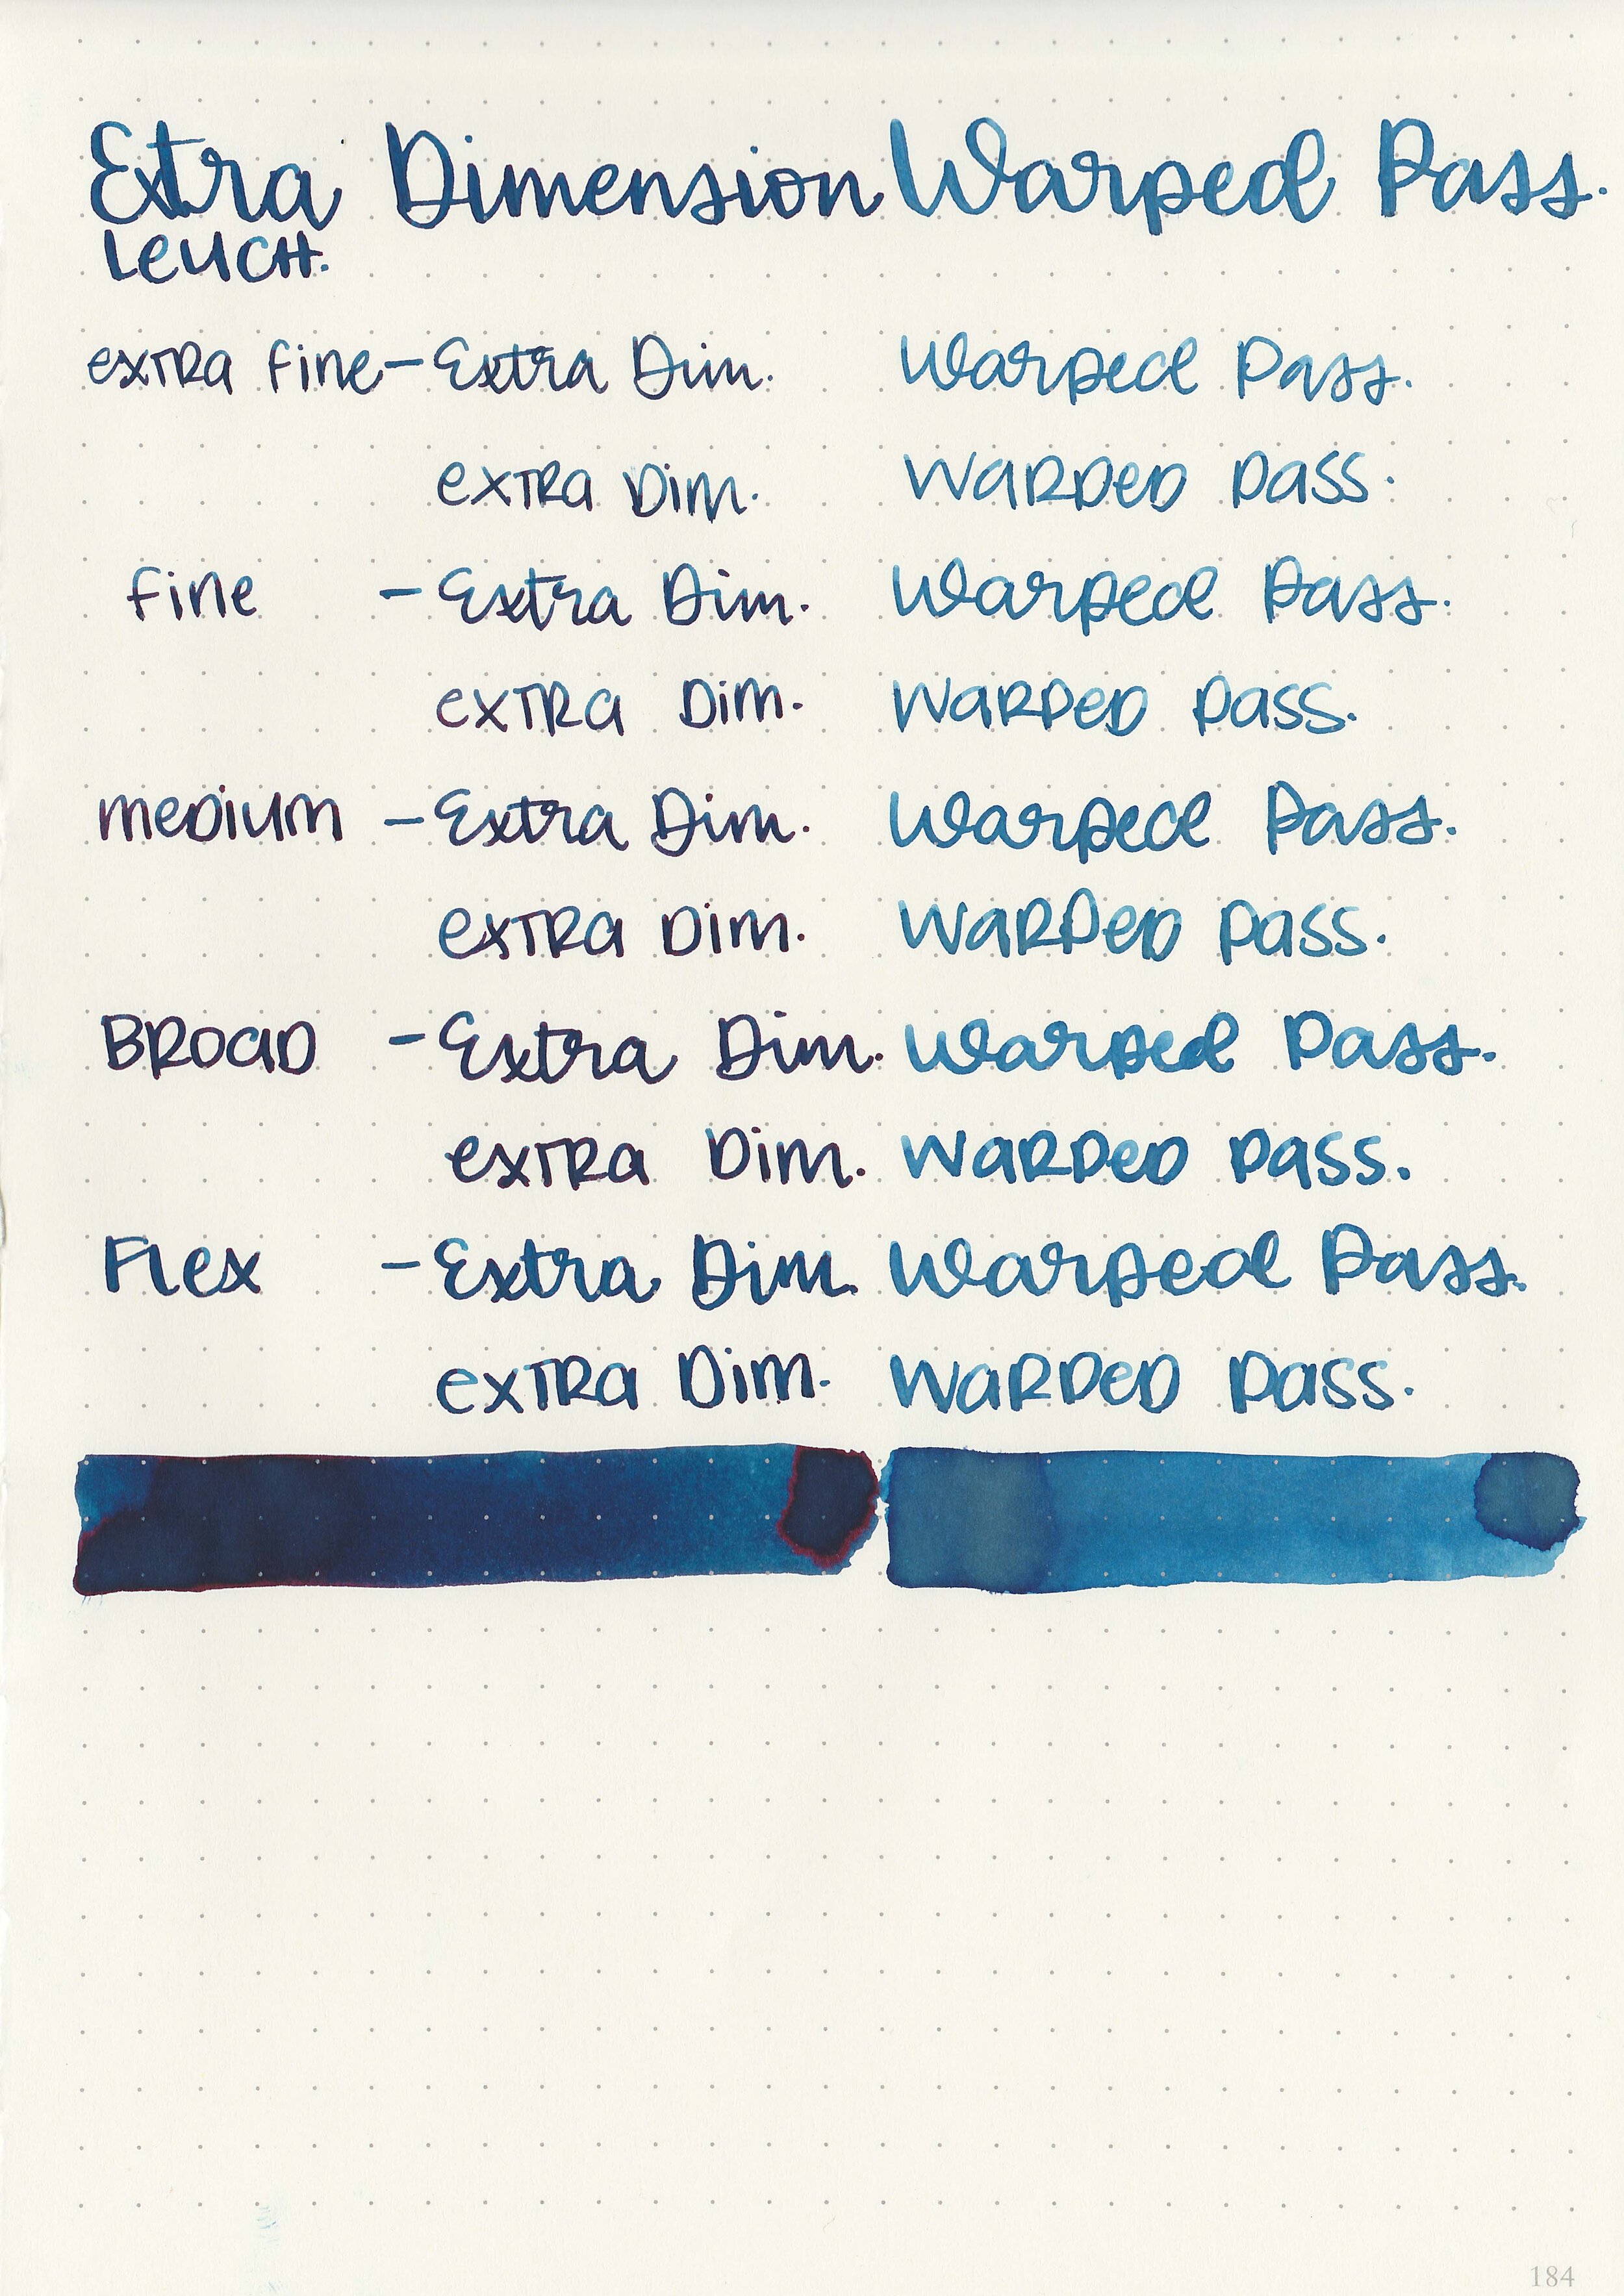 Extra Dimension Warped Pass.
Leuch.
extra fine - Extra Dim. Warped Pass.
extra Dim. Warped Pass.
fine - Extra Dim. Warped Pass.
extra Dim. Warped Pass.
medium - Extra Dim. Warped Pass.
extra Dim. Warped Pass.
Broad - Extra Dim. Warped Pass.
extra Dim. Warped Pass.
Flex - Extra Dim. Warped Pass.
extra Dim. Warped Pass.
184